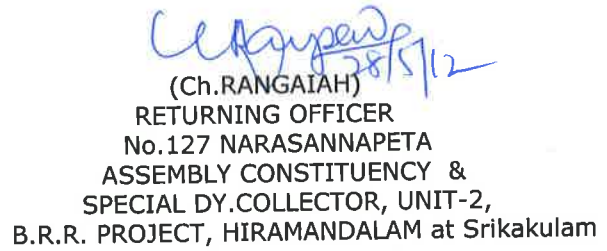 28/5/12
(Ch.RANGAIAH)
RETURNING OFFICER
No.127 NARASANNAPETA
ASSEMBLY CONSTITUENCY &
SPECIAL DY.COLLECTOR, UNIT-2,
B.R.R. PROJECT, HIRAMANDALAM at Srikakulam